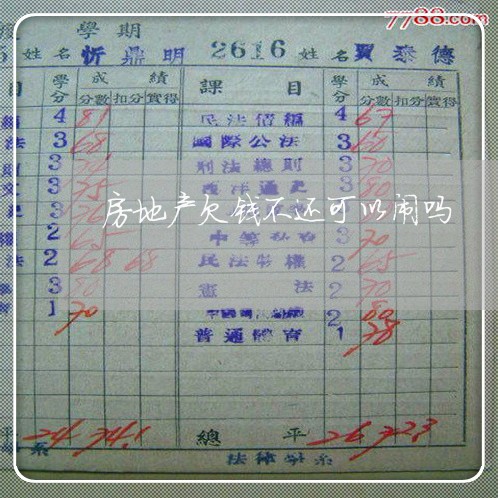 7788.com
學期
姓名 忻鼎明 2616 姓名 賈泰德
目 學分 成績 課目 學分 成績
分數 扣分 實得 分數 扣分 實得
4 81 民法債編 4 67
法 3 68 國際公法 3 60
3 刑法總則 3 70
3 75 3 80
3 3
房地产欠钱不还可以闹吗
2 65 3 70
法 2 68 68 民法物權 2 65
3 80 憲法 2 70
1 70 2 80
普通體育 1 78
平 24 74.1 總平 26 72.3
系 法律學系